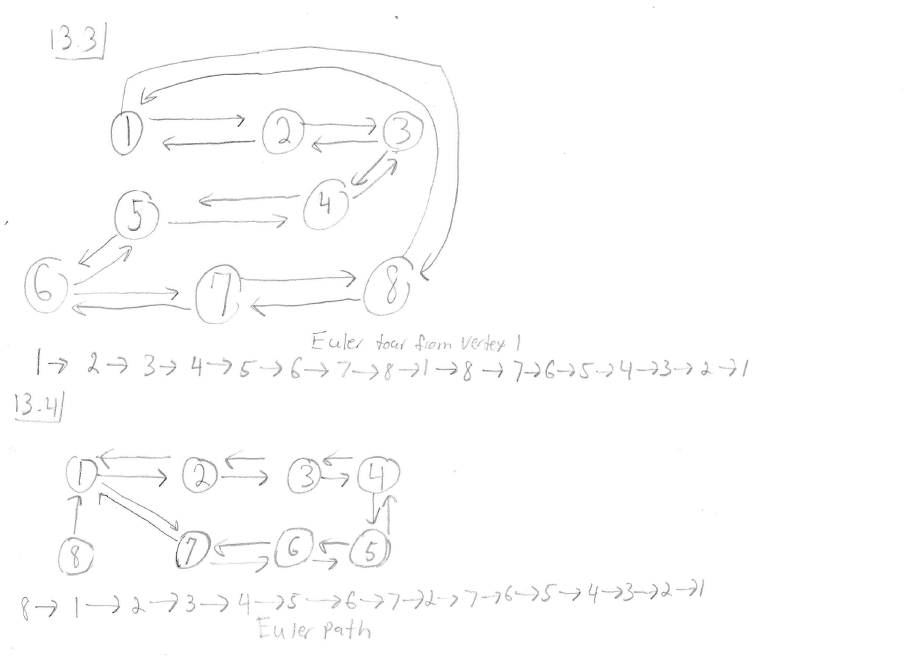 13.3
1 2 3
5 4
6 7 8
Euler tour from vertex 1
1→ 2→ 3→ 4→5→6→7→8→1→8→7→6→5→4→3→2→1
13.4
1 2 3 4
8 7 6 5
8→ 1→2→3→4→5→6→7→2→7→6→5→4→3→2→1
Euler path